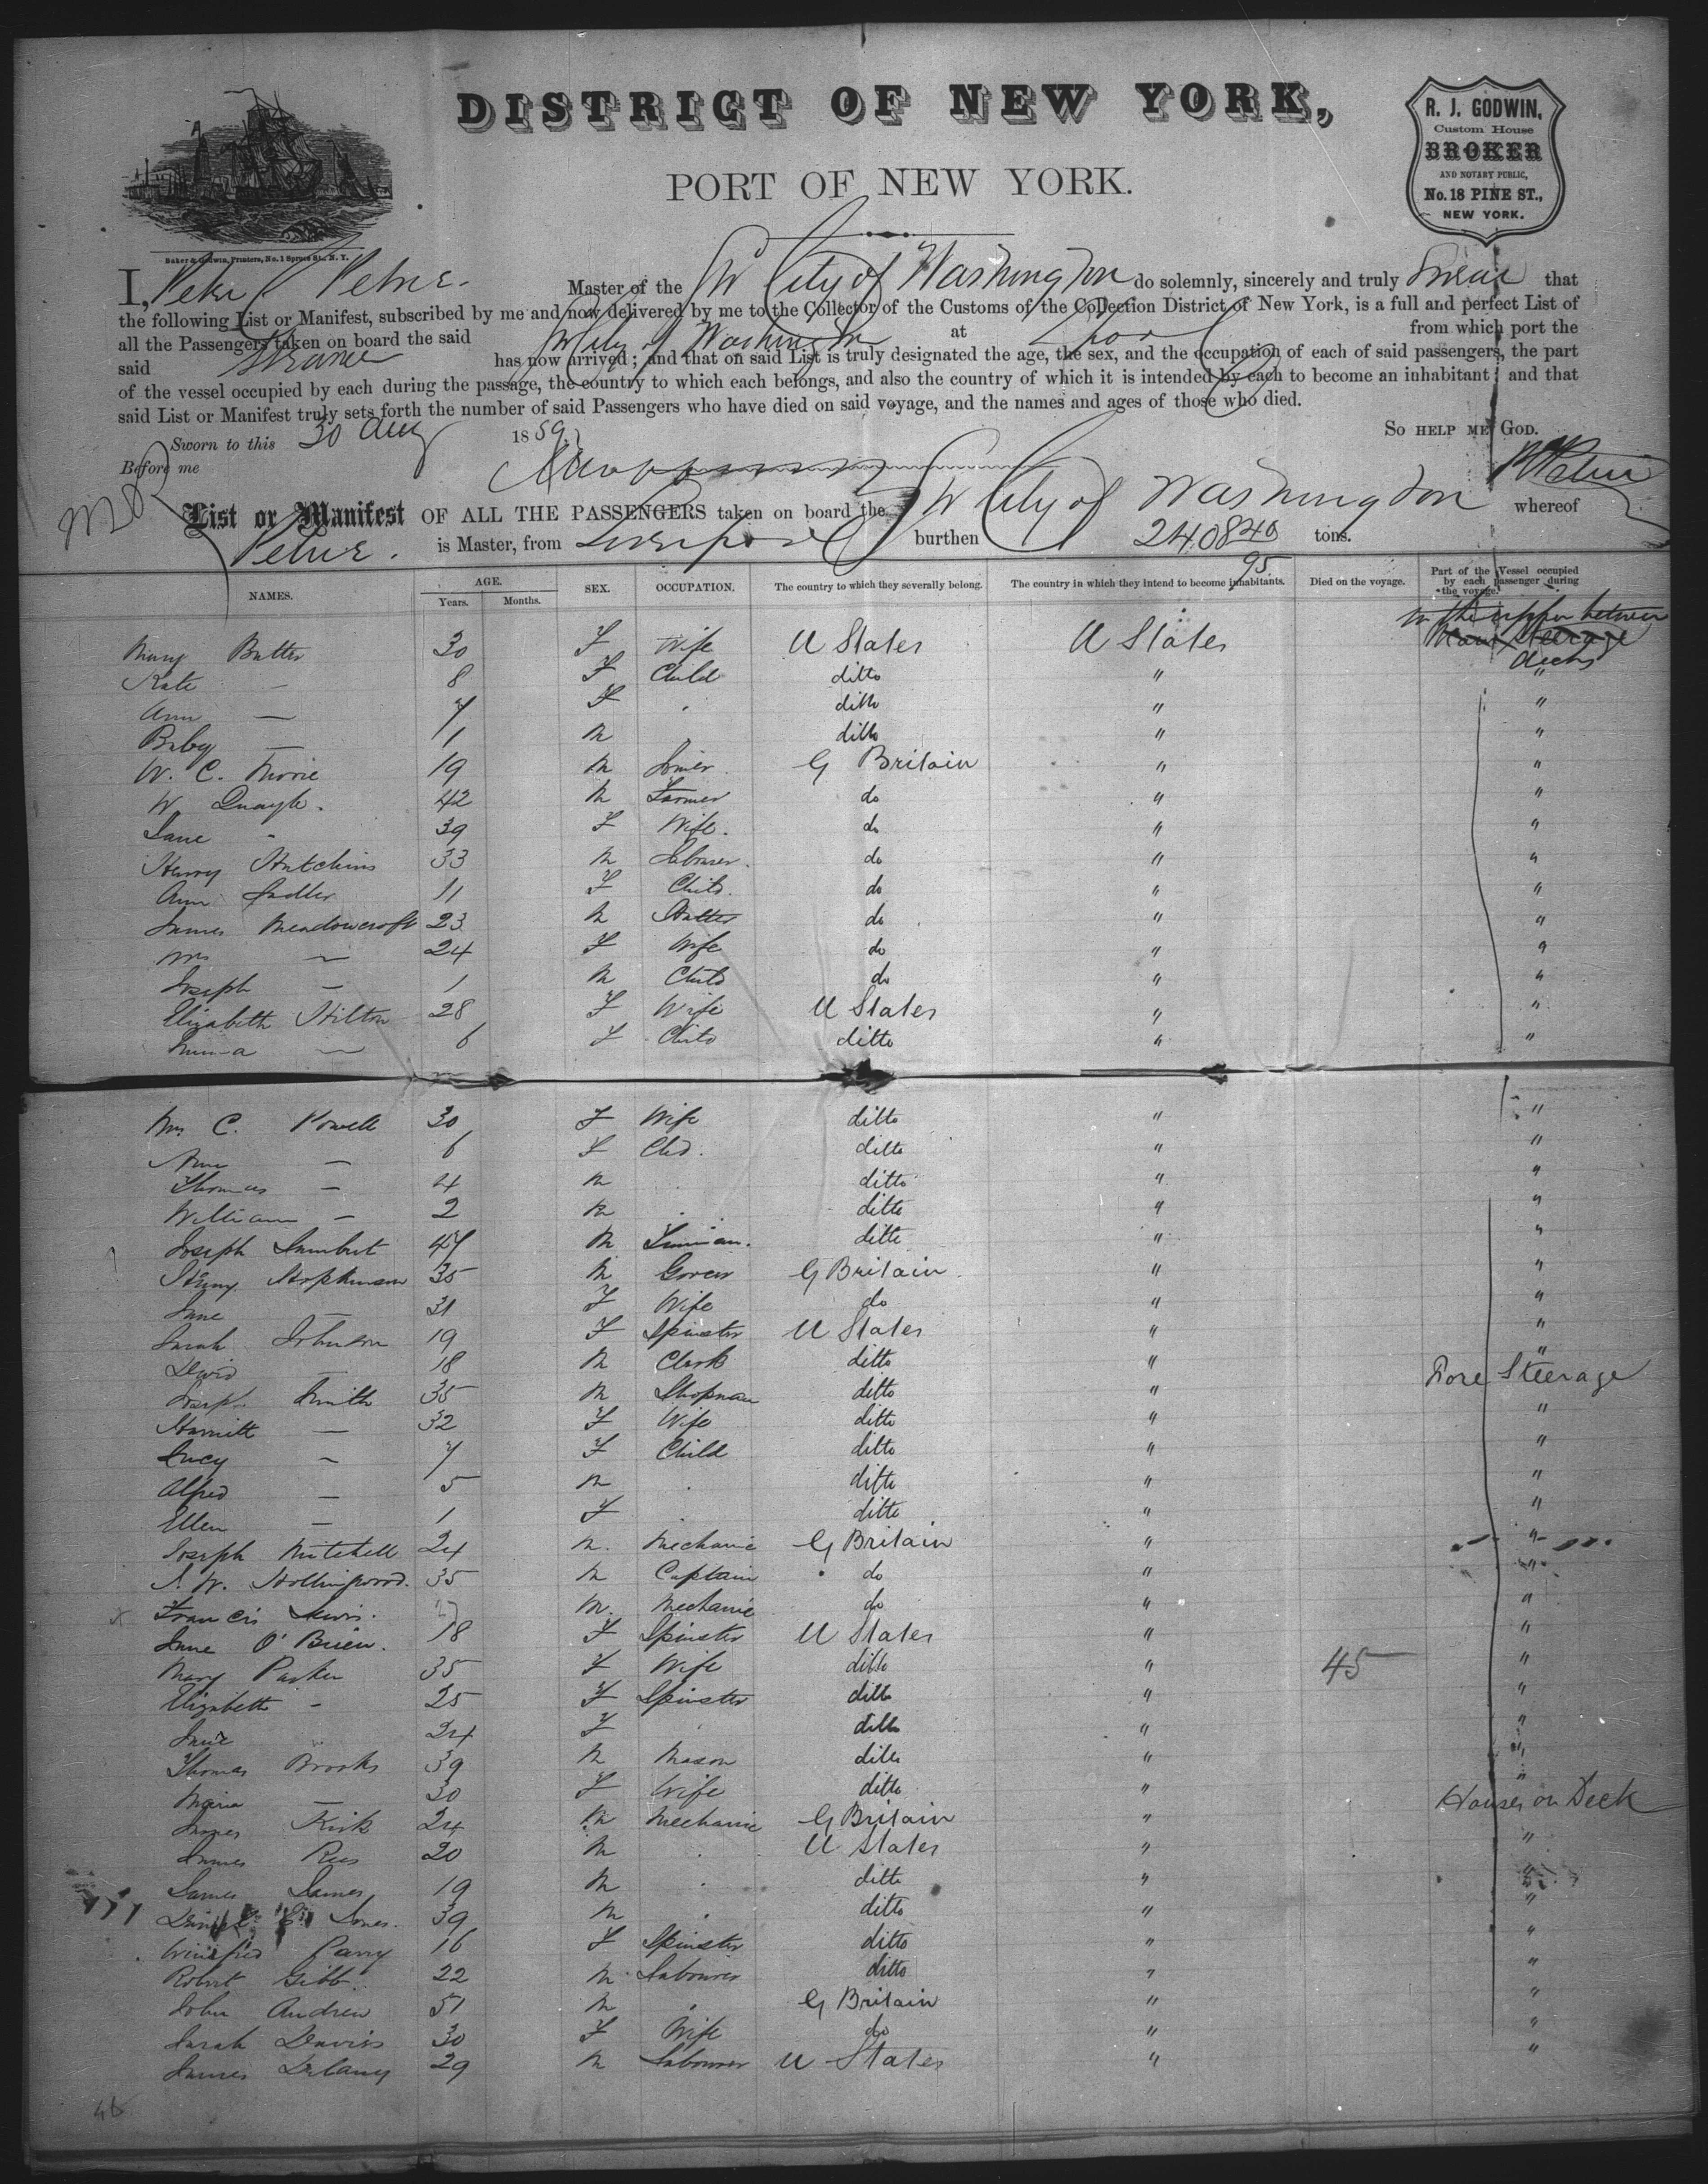 DISTRICT OF NEW YORK,
PORT OF NEW YORK.
R. J. GODWIN,
Custom House
BROKER
AND NOTARY PUBLIC,
No. 18 PINE ST.,
NEW YORK.
Baker & Godwin, Printers, No. 1 Spruce St., N. Y.
I, Peter Petrie Master of the SS City of Washington do solemnly, sincerely and truly Swear that
the following List or Manifest, subscribed by me and now delivered by me to the Collector of the Customs of the Collection District of New York, is a full and perfect List of
all the Passengers taken on board the said City of Washington at Lpool from which port the
said Steamer has now arrived; and that on said List is truly designated the age, the sex, and the occupation of each of said passengers, the part
of the vessel occupied by each during the passage, the country to which each belongs, and also the country of which it is intended by each to become an inhabitant; and that
said List or Manifest truly sets forth the number of said Passengers who have died on said voyage, and the names and ages of those who died.
Sworn to this 30 Aug 1859 So HELP ME GOD.
Before me
List or Manifest OF ALL THE PASSENGERS taken on board the City of Washington whereof
Petrie. is Master, from Liverpool burthen 2408 40/95 tons.
NAMES. AGE. Years. Months. SEX. OCCUPATION. The country to which they severally belong. The country in which they intend to become inhabitants. Died on the voyage. Part of the Vessel occupied by each passenger during the voyage.
in the upper between
Mary Butter 30 F Wife U States U States decks
Kate — 8 F Child ditto " "
Ann — 7 F ditto " "
Baby — 1 M ditto " "
W. C. 19 M G Britain " "
W Quayle. 42 M Farmer do " "
Jane " 39 F Wife. do " "
Henry Hutchins 33 M Labourer. do " "
Ann Sadler 11 F Child. do " "
James Meadowcroft 23 M do " "
Mrs — 24 F Wife do " "
Joseph — 1 M Child do " "
Elizabeth Hilton 28 F Wife U States " "
Emma — 6 F Child ditto " "
Mrs C. Powell 30 F Wife ditto " "
Ann — 6 F Chd. ditto " "
Thomas — 4 M ditto " "
William — 2 M ditto " "
Joseph Lambert 47 M ditto " "
Henry Hopkinson 35 M Grocer G Britain " "
Jane — 31 F Wife do " "
Sarah Johnson 19 F Spinster U States " "
David — 18 M Clerk ditto " "
Joseph Smith 35 M Shopman ditto " Fore Steerage
Harriett — 32 F Wife ditto " "
Lucy — 7 F Child ditto " "
Alfred — 5 M ditto " "
Ellen — 1 F ditto " "
Joseph Mitchell 24 M. Mechanic G Britain " "
W. Hollingwood. 35 M Captain do " "
Francis Lewis. M. Mechanic do " "
Jane O'Brien. 18 F Spinster U States " "
Mary Parker 35 F Wife ditto " 45 "
Elizabeth - 25 F Spinster ditto " "
Jane " 24 F ditto " "
Thomas Brooks 39 M Mason ditto " "
Maria — 30 F Wife ditto " "
James Kirk 24 M Mechanic G Britain " Houses on Deck
James Rees 20 M U States " "
James James 19 M ditto " "
Daniel Jones. 39 M ditto " "
Winifred Parry 16 F Spinster ditto " "
Robert Gibb 22 M Labourer ditto " "
John Andrew 51 M G Britain " "
Sarah Davies 30 F Wife do " "
James Delany 29 M Labourer U States " "